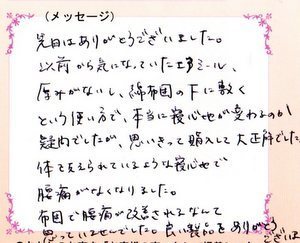 (メッセージ)
先日はありがとうございました。
以前から気になっていたエアミール、
厚みがないし、綿布団の下に敷く
という使い方で、本当に寝心地が変わるのか
疑問でしたが、思いきって購入して大正解でした。
体を支えられているような寝心地で
腰痛がなくなりました。
布団で腰痛が改善されるなんて
思っていませんでした。良い製品をありがとう
ございま